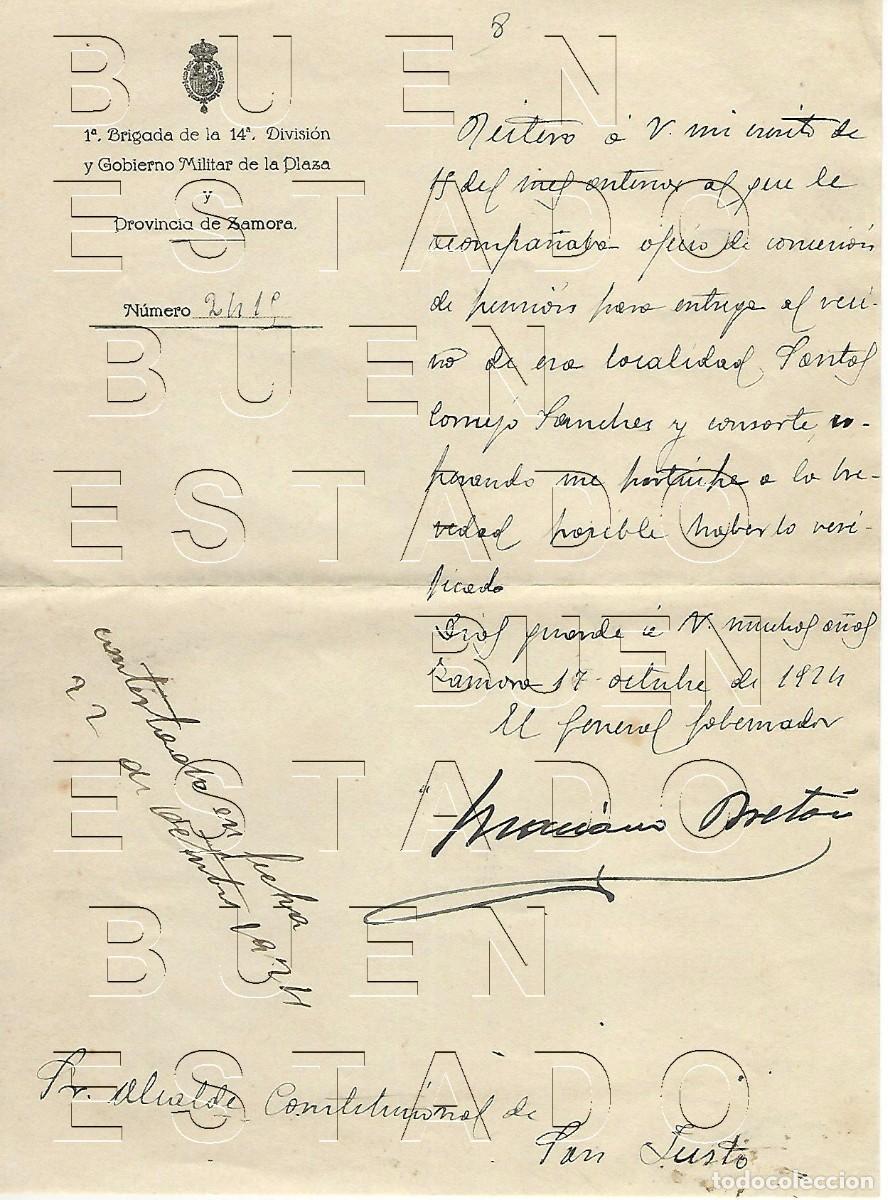 8
1ª. Brigada de la 14ª. División
y Gobierno Militar de la Plaza
y
Provincia de Zamora.
Número 2419
Reitero á V. mi escrito de
15 del mes anterior al que le
acompañaba oficio de concesión
de pensión para entrega al veci-
no de esa localidad Santos
Cornejo Sanches y consorte,
perando me participe a la bre-
vedad posible haberlo veri-
ficado
Dios guarde á V. muchos años
Zamora 17 octubre de 1924
El General Gobernador
Mariano Bretón
contestado en fecha
22 de octubre 1924
Sr. Alcalde Constitucional de
San Justo
BUEN
ESTADO
BUEN
ESTADO
BUEN
ESTADO
BUEN
ESTADO
todocoleccion